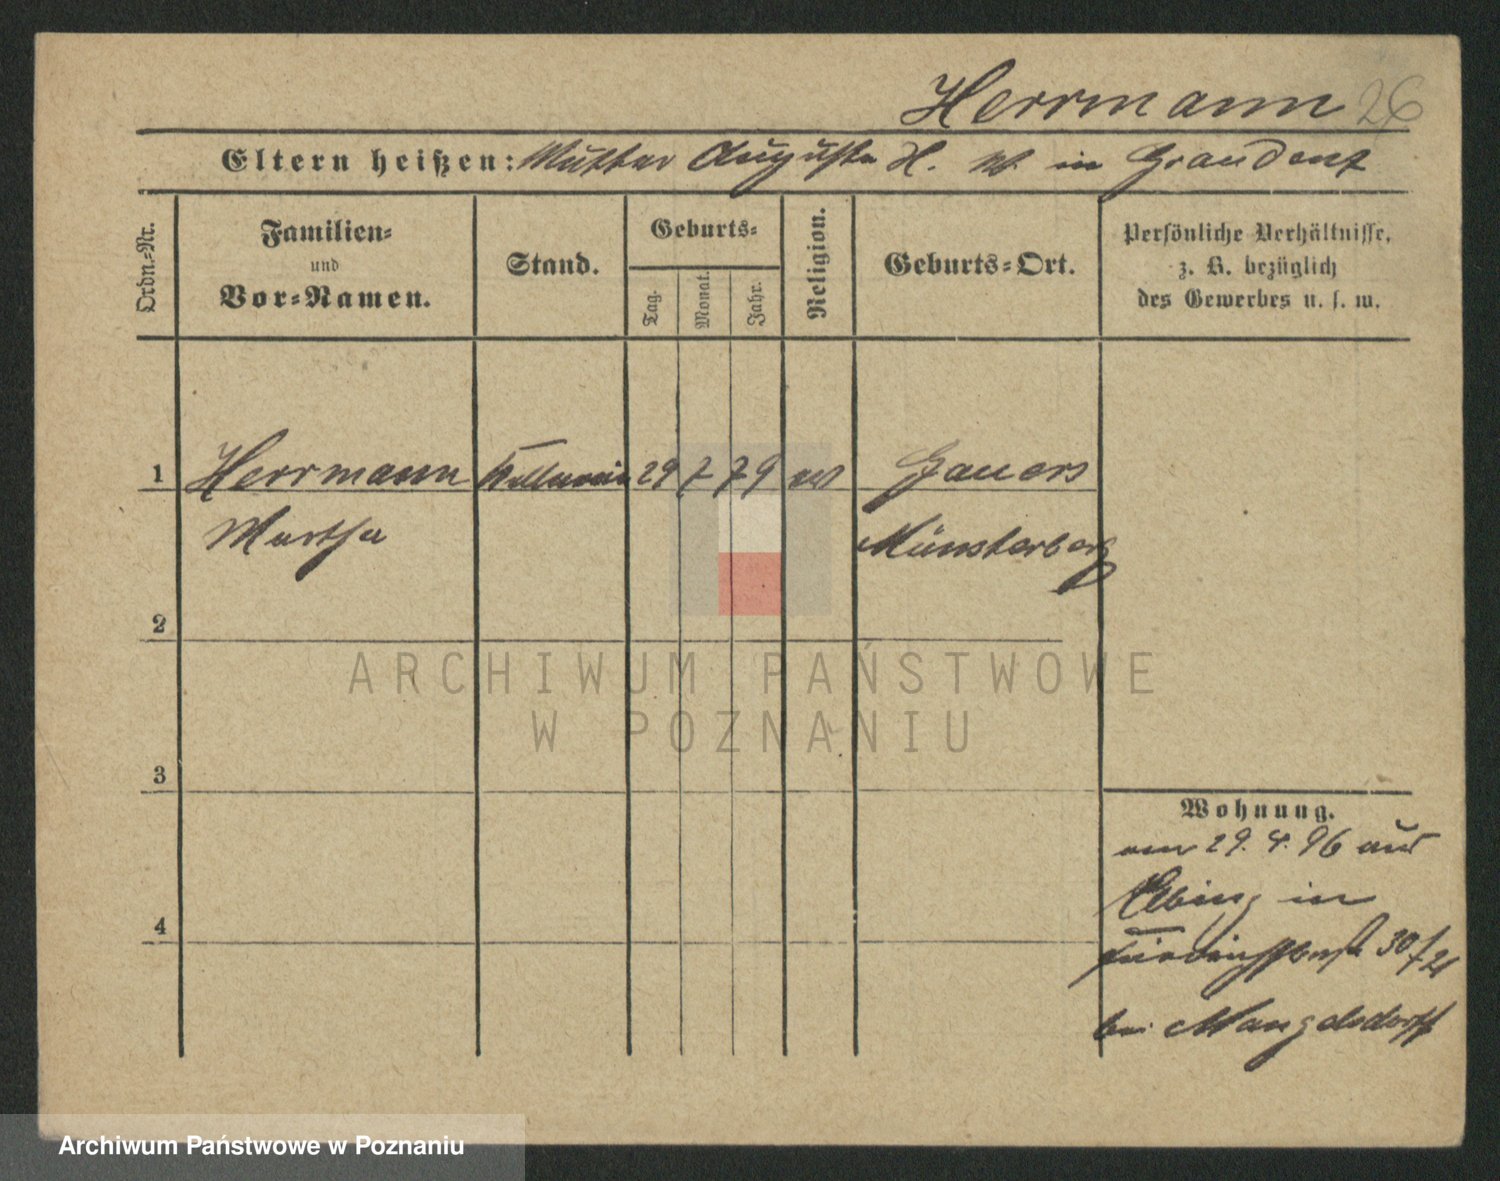 Herrmann 26
Eltern heißen: Mutter Auguste H. W. in Graudenz
Ordn.-Nr.
Familien-
und
Vor-Namen.
Stand.
Geburts-
Tag.
Monat.
Jahr.
Religion.
Geburts-Ort.
Persönliche Verhältnisse,
z. B. bezüglich
des Gewerbes u. s. w.
1 Herrmann Kellnerin 29 7 79 Gauers
Martha Münsterberg
2
3
4
ARCHIWUM PAŃSTWOWE
W POZNANIU
Wohnung.
29. 4. 96 aus
Elbing in
30/21
bei Mangelsdorff
Archiwum Państwowe w Poznaniu